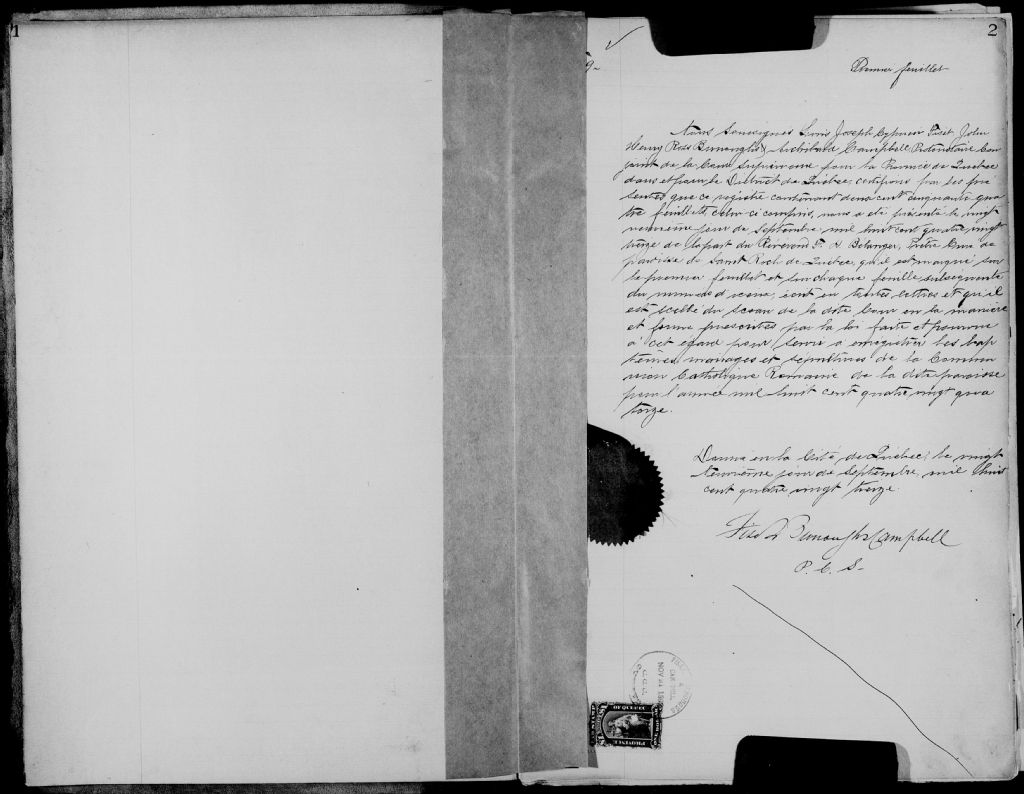 1
2
Premier feuillet
Nous Soussignés Louis Joseph Cyprien Fiset, John
Henry Ross Burroughs & Archibald Campbell Protonotaire Con
joint de la Cour Supérieure pour la Province de Québec
dans et pour le District de Québec, certifions par les pré
sentes que ce registre contenant deux cent cinquante qua
tre feuillets, celui-ci compris, nous a été présenté le vingt
neuvieme jour de Septembre mil huit cent quatre vingt
treize de la part du Révérend F. H. Belanger, Prêtre Curé de
paroisse de Saint Roch de Québec, qu'il est marqué sur
le premier feuillet et sur chaque feuille subsequente
du numéro d'icelui, écrit en toutes lettres et qu'il
est scellé du sceau de la dite Cour en la manière
et forme prescrites par la loi faite et pourvue
à cet égard pour servir à enregistrer les bap
têmes mariages et sépultures de la Commu
nion Catholique Romaine de la dite paroisse
pour l'année mil huit cent quatre vingt qua
torze.
Donné en la Cité de Québec, le vingt
neuvième jour de Septembre, mil huit
cent quatre vingt treize
Fiset Burroughs Campbell
P. C. S.
NOV 21
OF QUEBEC
PROVINCE